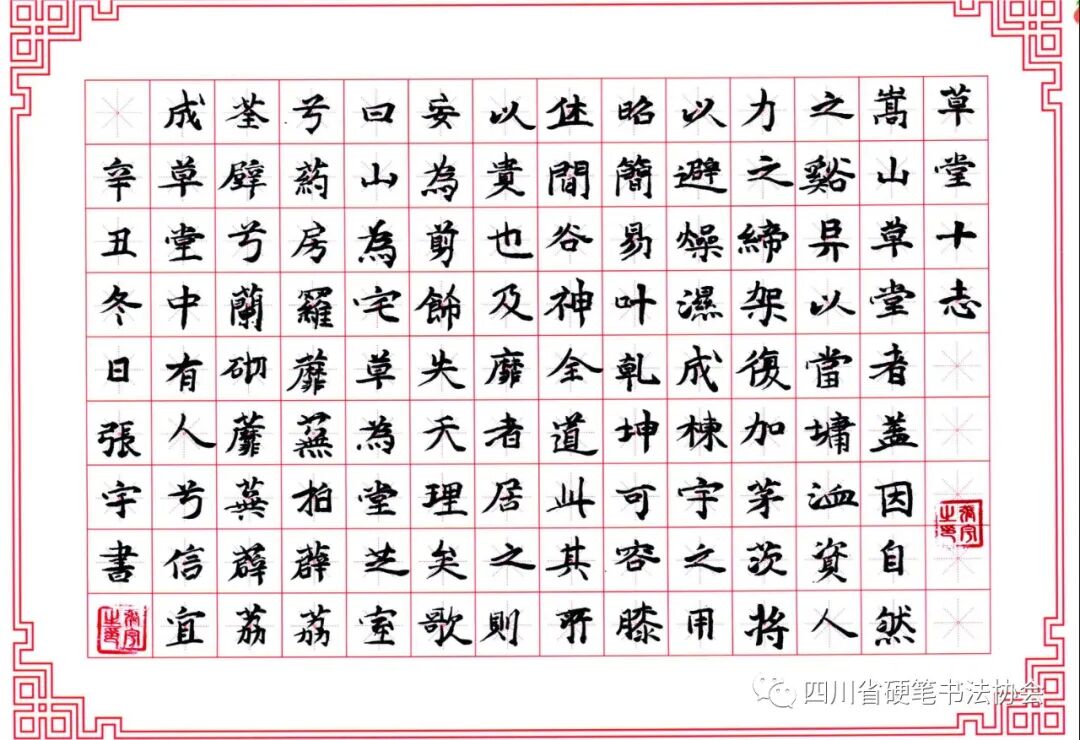 草堂十志
嵩山草堂者盖因自然
之谿异以當墉洫資人
力之締架復加茅茨將
以避燥濕成棟宇之用
昭簡易叶乾坤可容膝
休間谷神全道此其所
以貴也及靡者居之則
妄為剪飾失天理矣歌
曰山為宅草為堂芝室
兮葯房羅蘼蕪拍薜荔
荃壁兮蘭砌蘼蕪薜荔
成草堂中有人兮信宜
辛丑冬日張宇書
張宇之印
張宇之印
四川省硬笔书法协会